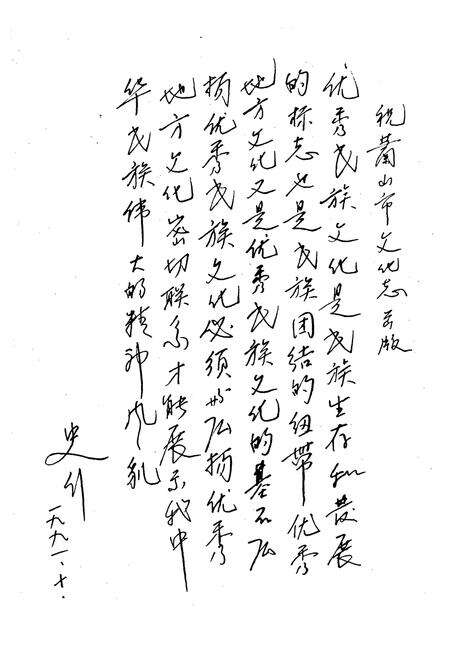 祝萧山市文化志出版
优秀民族文化是民族生存和发展
的标志也是民族团结的纽带优秀
地方文化又是优秀民族文化的基石弘
扬优秀民族文化必须与弘扬优秀
地方文化密切联系才能展示我中
华民族伟大的精神风貌
史行
一九九一、十、